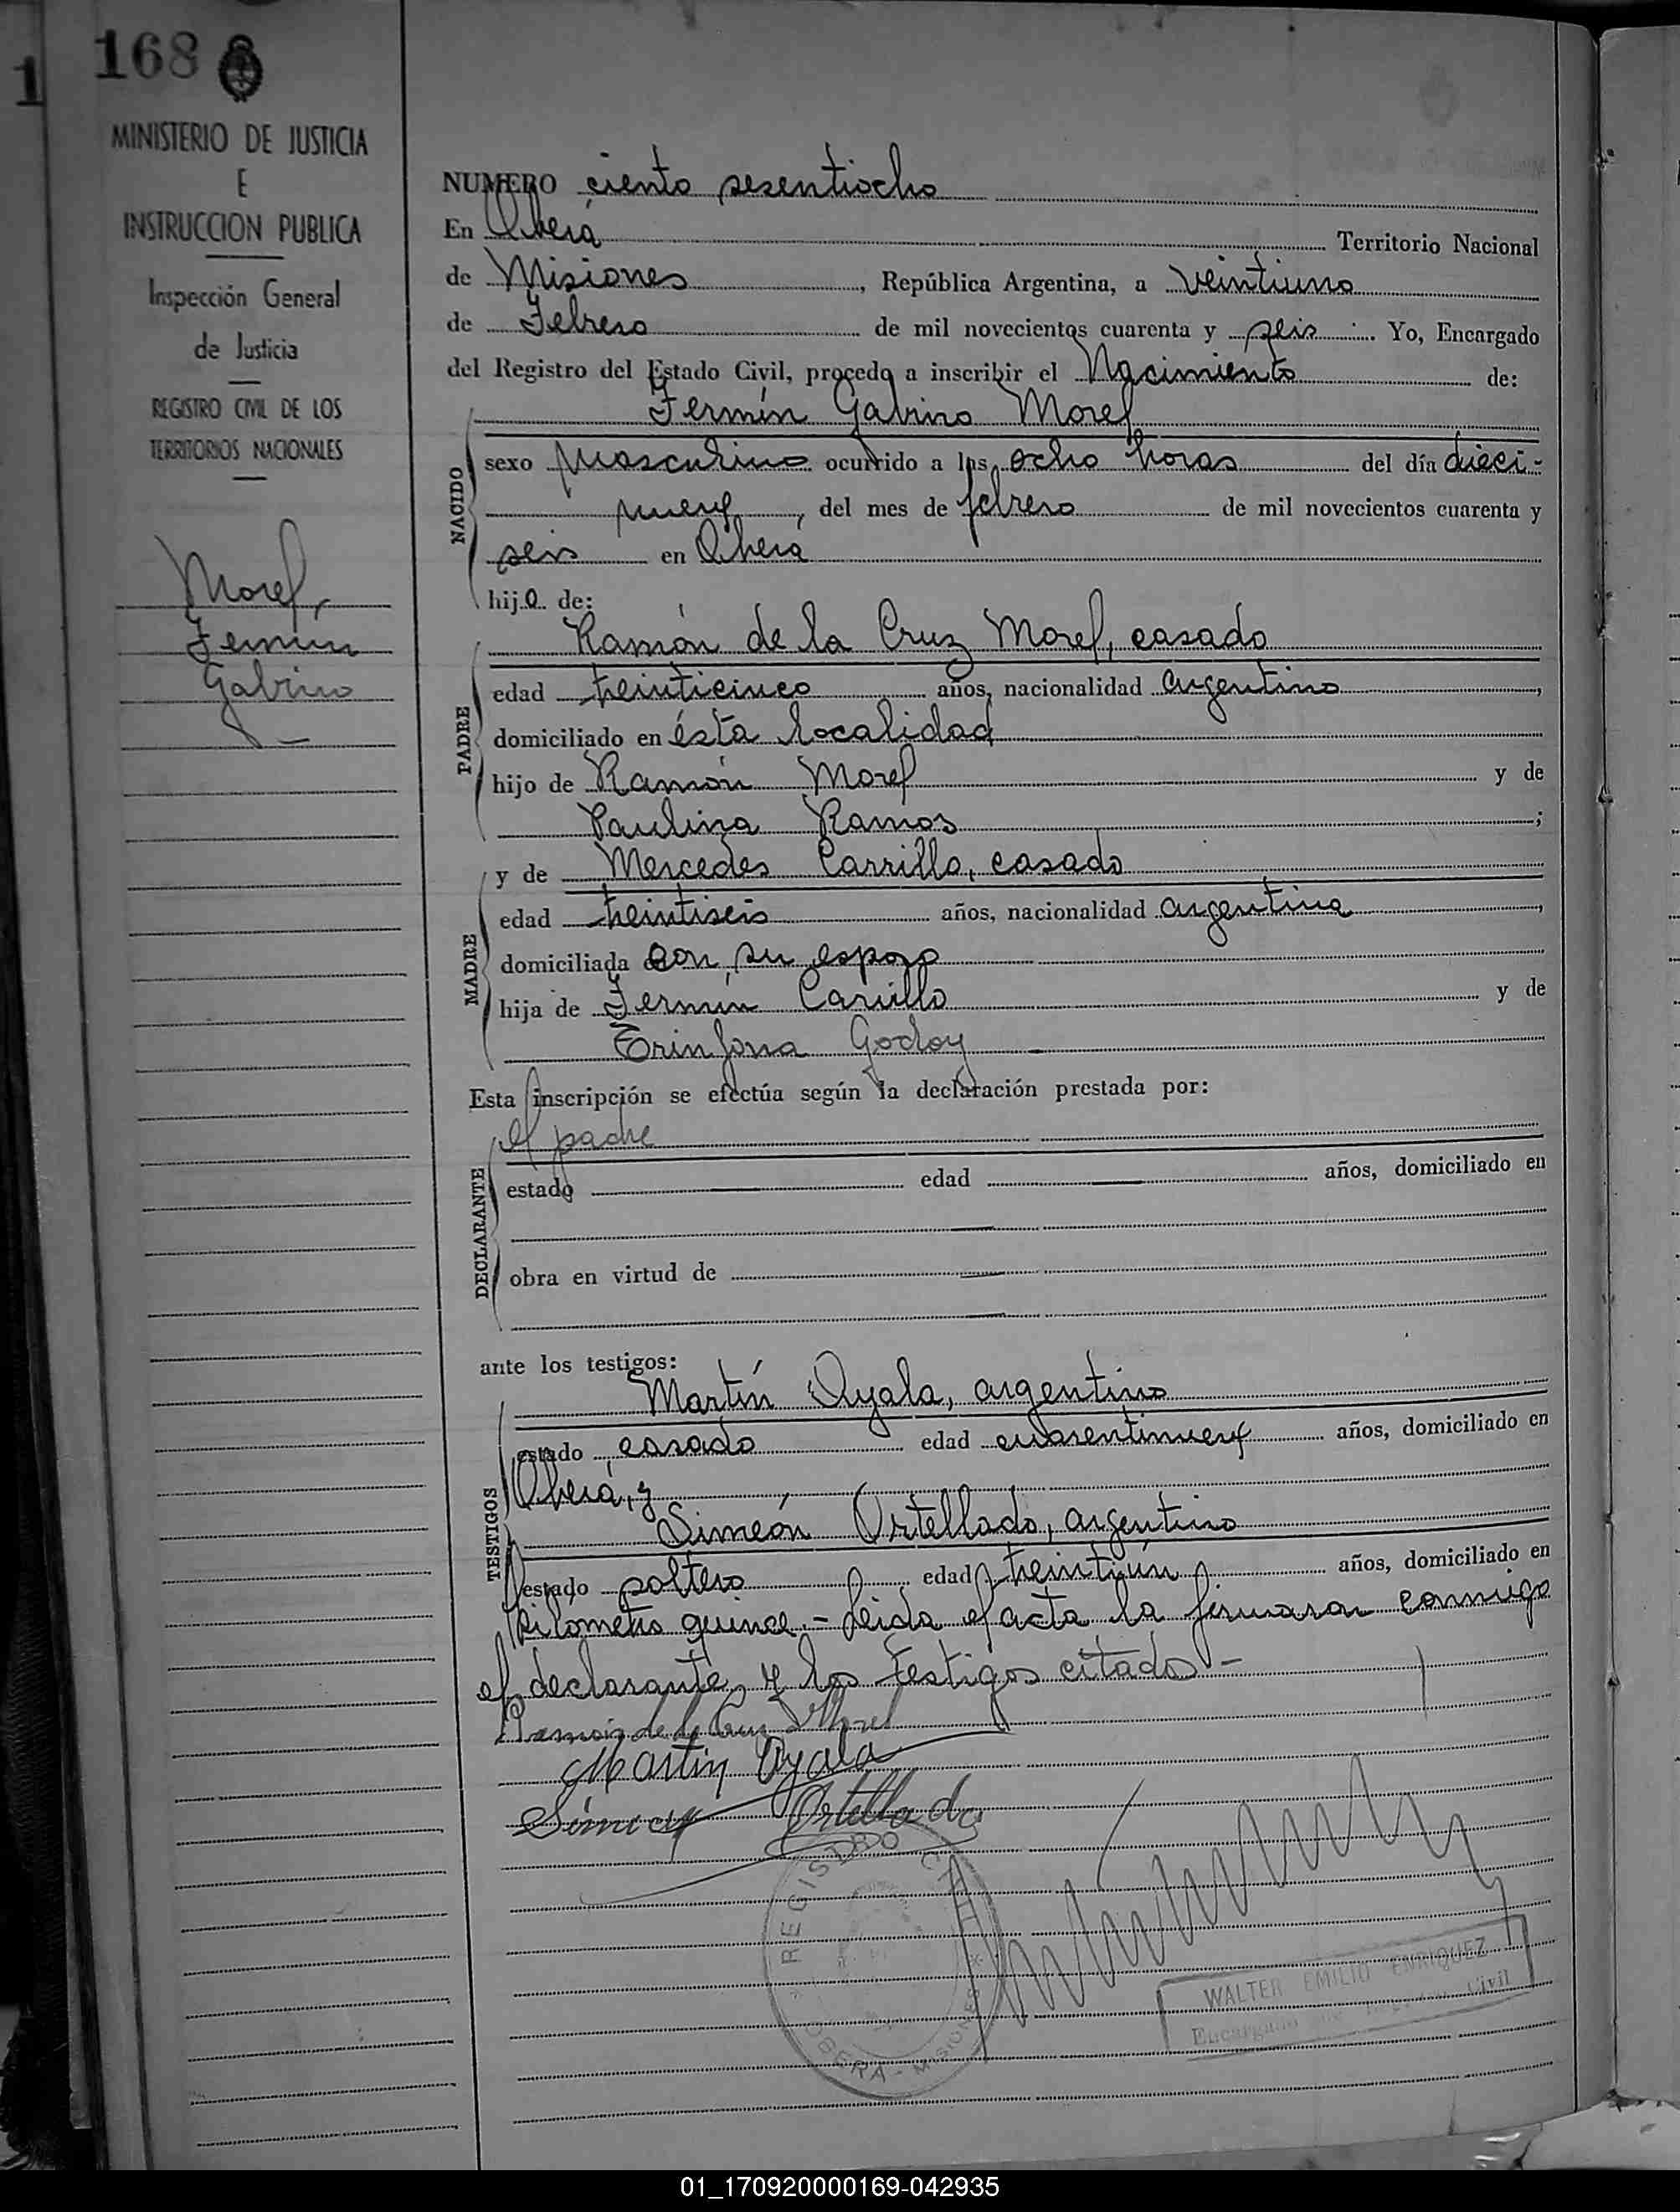 1
168
MINISTERIO DE JUSTICIA
E
INSTRUCCION PUBLICA
Inspección General
de Justicia
REGISTRO CIVIL DE LOS
TERRITORIOS NACIONALES
Morel,
Fermín
Gabino
NUMERO ciento sesentiocho
En Oberá Territorio Nacional
de Misiones, República Argentina, a veintiuno
de Febrero de mil novecientos cuarenta y seis. Yo, Encargado
del Registro del Estado Civil, procedo a inscribir el Nacimiento de:
Fermín Gabino Morel
NACIDO
sexo masculino ocurrido a las ocho horas del día dieci-
nueve, del mes de febrero de mil novecientos cuarenta y
seis en Oberá
hijo de:
PADRE
Ramón de la Cruz Morel, casado
edad treinticinco años, nacionalidad argentino,
domiciliado en ésta localidad
hijo de Ramón Morel y de
Paulina Ramos;
MADRE
y de Mercedes Carrillo, casado
edad treintiseis años, nacionalidad argentina,
domiciliada con su esposo
hija de Fermín Carrillo y de
Godoy
Esta inscripción se efectúa según la declaración prestada por:
DECLARANTE
el padre
estado edad años, domiciliado en
obra en virtud de
ante los testigos:
TESTIGOS
Martín Ayala, argentino
estado casado edad cuarentinueve años, domiciliado en
Oberá, y
Simeón Ortellado, argentino
estado soltero edad treintiún años, domiciliado en
kilometro quince.- Leida el acta la firmaron conmigo
el declarante y los testigos citados -
Ramón de la Cruz Morel
Martin Ayala
Simeon Ortellado
REGISTRO CIVIL
OBERA - MISIONES
WALTER EMILIO ENRIQUEZ
Encargado del Registro Civil
01_170920000169-042935